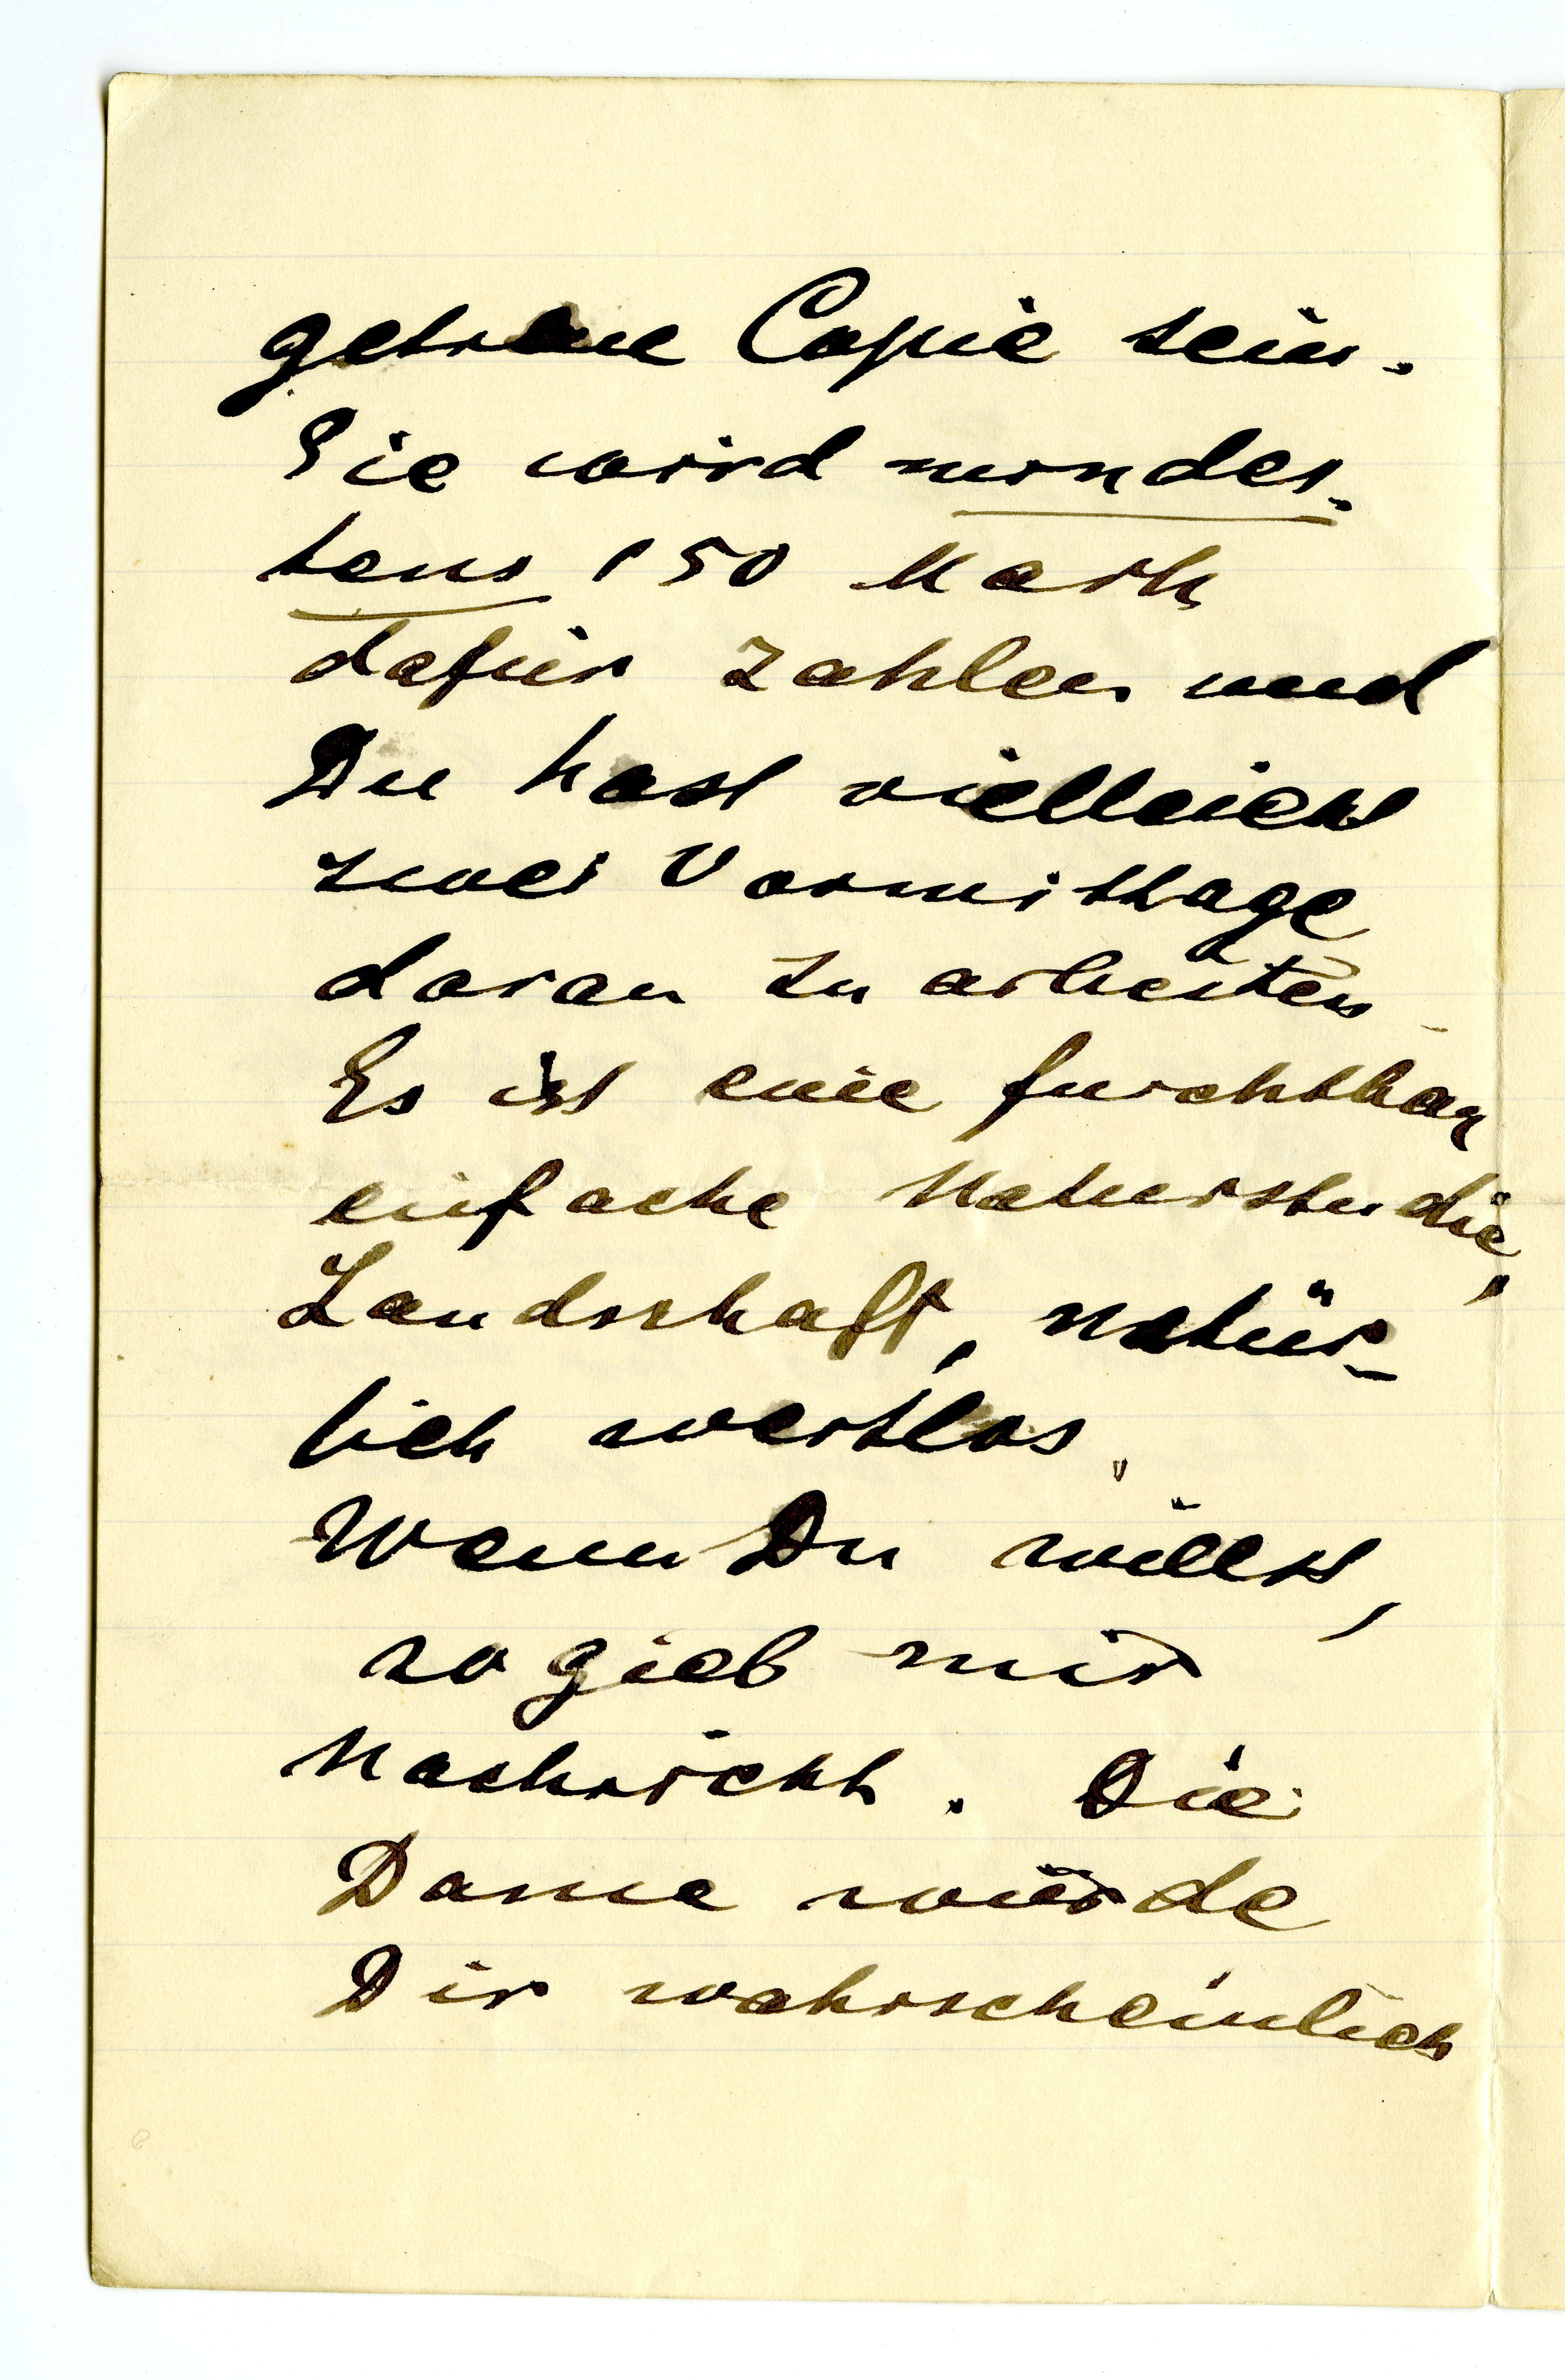 getreue Copie sein.
Sie wird mindes-
tens 150 Mark
dafür zahlen und
Du hast vielleicht
zwei Vormittage
daran zu arbeiten.
Es ist eine furchtbar
einfache Naturstudie,
Landschaft, natür-
lich wertlos.
Wenn Du willst,
so gieb mir
Nachricht. Die
Dame würde
Dir wahrscheinlich